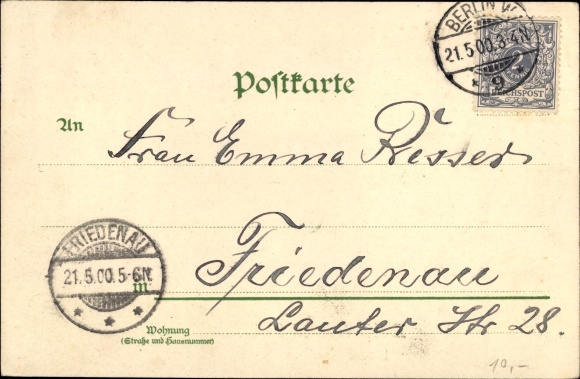 BERLIN W.
21.5.00.3-4N.
* 9 *
2
REICHSPOST
Postkarte
An
Frau Emma Resser
Friedenau
FRIEDENAU
21.5.00.5-6N.
in
Lauter Str 28.
Wohnung
(Straße und Hausnummer)
10,-